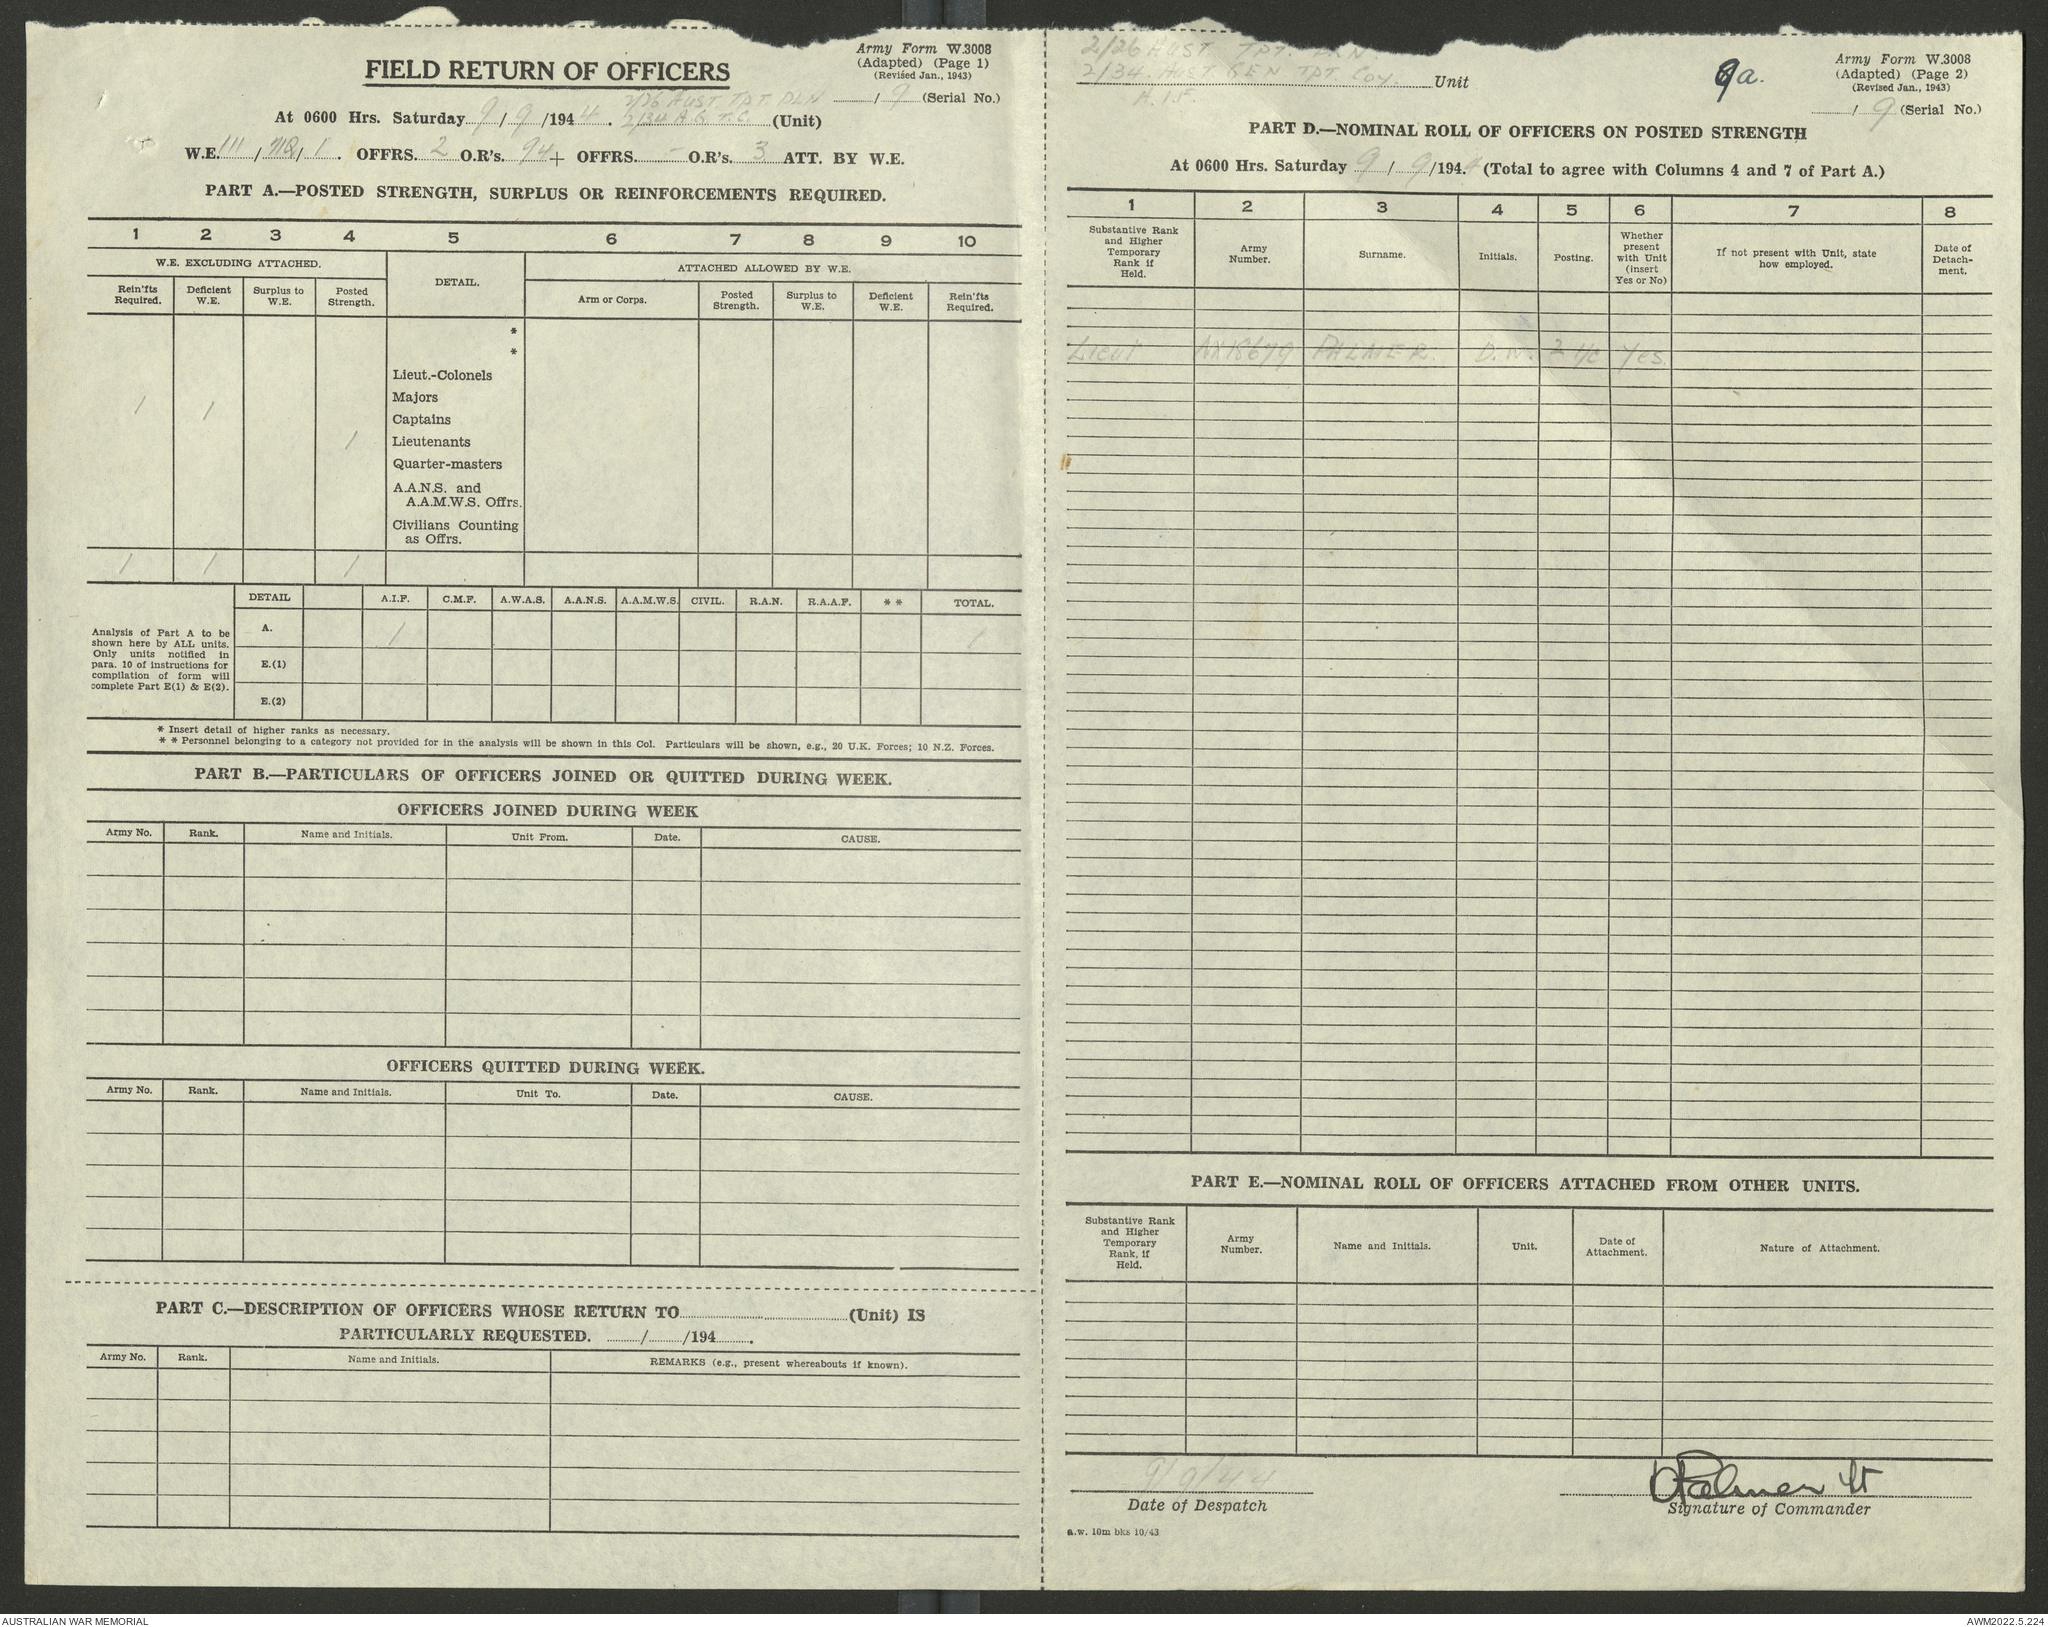 Army Form W.3008
(Adapted) (Page 1)
(Revised Jan., 1943)
FIELD RETURN OF OFFICERS
/ 9 (Serial No.)
2/26 AUST. TPT. PLN
At 0600 Hrs. Saturday 9 / 9 /1944. 2/34 A.G.T.C. (Unit)
W.E. III / / 1 . OFFRS. 2 O.R's. 94 + OFFRS. - O.R's. 3 ATT. BY W.E.
PART A.—POSTED STRENGTH, SURPLUS OR REINFORCEMENTS REQUIRED.
1 2 3 4 5 6 7 8 9 10
W.E. EXCLUDING ATTACHED. DETAIL. ATTACHED ALLOWED BY W.E.
Rein'fts Required. Deficient W.E. Surplus to W.E. Posted Strength. Arm or Corps. Posted Strength. Surplus to W.E. Deficient W.E. Rein'fts Required.
*
*
Lieut.-Colonels
Majors
1 1 Captains
1 Lieutenants
Quarter-masters
A.A.N.S. and
A.A.M.W.S. Offrs.
Civilians Counting
as Offrs.
1 1 1
DETAIL A.I.F. C.M.F. A.W.A.S. A.A.N.S. A.A.M.W.S. CIVIL. R.A.N. R.A.A.F. * * TOTAL.
Analysis of Part A to be
shown here by ALL units.
Only units notified in
para. 10 of instructions for
compilation of form will
complete Part E(1) & E(2).
A. 1 1
E.(1)
E.(2)
* Insert detail of higher ranks as necessary.
* * Personnel belonging to a category not provided for in the analysis will be shown in this Col. Particulars will be shown, e.g., 20 U.K. Forces; 10 N.Z. Forces.
PART B.—PARTICULARS OF OFFICERS JOINED OR QUITTED DURING WEEK.
OFFICERS JOINED DURING WEEK
Army No. Rank. Name and Initials. Unit From. Date. CAUSE.
OFFICERS QUITTED DURING WEEK.
Army No. Rank. Name and Initials. Unit To. Date. CAUSE.
PART C.—DESCRIPTION OF OFFICERS WHOSE RETURN TO (Unit) IS
PARTICULARLY REQUESTED. / /194 .
Army No. Rank. Name and Initials. REMARKS (e.g., present whereabouts if known).
2/26 AUST TPT. PLN.
2/34. AUST GEN TPT. Coy. Unit
A.I.F.
9a.
Army Form W.3008
(Adapted) (Page 2)
(Revised Jan., 1943)
/ 9 (Serial No.)
PART D.—NOMINAL ROLL OF OFFICERS ON POSTED STRENGTH
At 0600 Hrs. Saturday 9 / 9 /1944 (Total to agree with Columns 4 and 7 of Part A.)
1 2 3 4 5 6 7 8
Substantive Rank and Higher Temporary Rank if Held. Army Number. Surname. Initials. Posting. Whether present with Unit (insert Yes or No) If not present with Unit, state how employed. Date of Detach-ment.
Lieut NX18679 PALMER. D.W. 2 i/c Yes.
PART E.—NOMINAL ROLL OF OFFICERS ATTACHED FROM OTHER UNITS.
Substantive Rank and Higher Temporary Rank, if Held. Army Number. Name and Initials. Unit. Date of Attachment. Nature of Attachment.
9/9/44
Date of Despatch
Palmer Lt
Signature of Commander
a.w. 10m bks 10/43
AUSTRALIAN WAR MEMORIAL
AWM2022.5.224